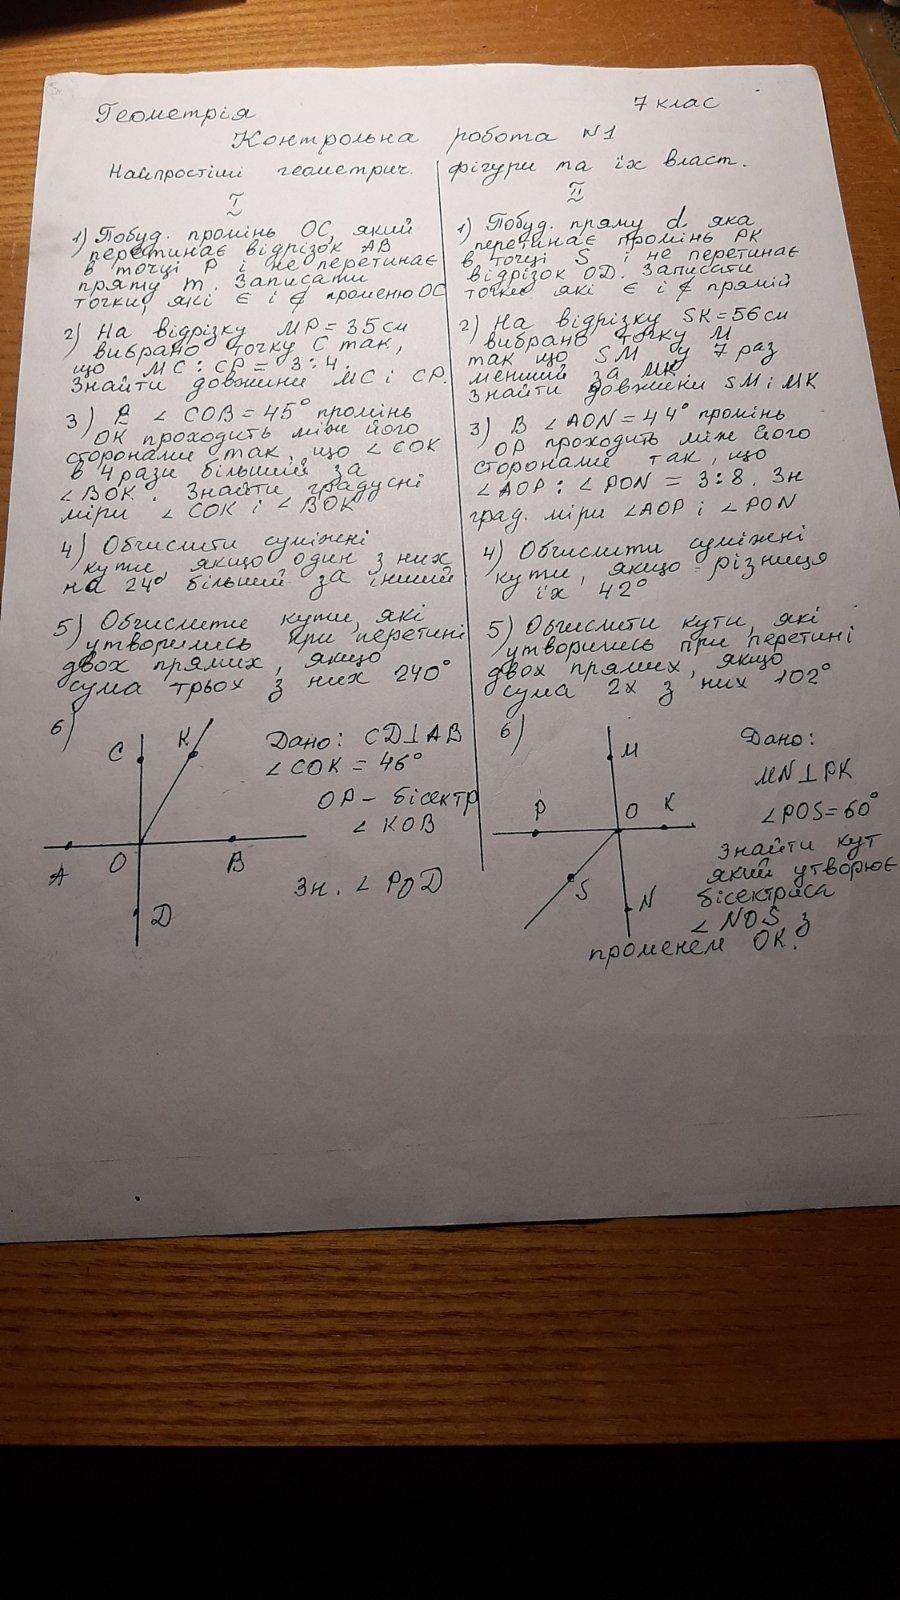 Геометрія
7 клас
Контрольна робота №1
Найпростіші геометрич. фігури та їх власт.
I
1) Побуд. промінь OC, який
перетинає відрізок AB
в точці P і не перетинає
пряму m. Записати
точки, які ∈ і ∉ променю OC
2) На відрізку MP = 35 см
вибрано точку C так,
що MC : CP = 3:4.
Знайти довжини MC і CP.
3) В ∠COB = 45° промінь
OK проходить між його
сторонами так, що ∠COK
в 4 рази більший за
∠BOK. Знайти градусні
міри ∠COK і ∠BOK
4) Обчислити суміжні
кути, якщо один з них
на 24° більший за інший
5) Обчислити кути, які
утворились при перетині
двох прямих, якщо
сума трьох з них 240°
6)
C
K
A
O
B
D
Дано: CD⊥AB
∠COK = 46°
OP – бісектр
∠KOB
Зн. ∠POD
II
1) Побуд. пряму d, яка
перетинає промінь PK
в точці S і не перетинає
відрізок OD. Записати
точки які ∈ і ∉ прямій
2) На відрізку SK = 56 см
вибрано точку M
так що SM у 7 раз
менший за MK.
Знайти довжини SM і MK
3) В ∠AON = 44° промінь
OP проходить між його
сторонами так, що
∠AOP : ∠PON = 3:8. Зн
град. міри ∠AOP і ∠PON
4) Обчислити суміжні
кути, якщо різниця
їх 42°
5) Обчислити кути, які
утворились при перетині
двох прямих, якщо
сума 2х з них 102°
6)
M
P
O
K
S
N
Дано:
MN⊥PK
∠POS = 60°
Знайти кут
який утворює
бісектриса
∠NOS з
променем OK.